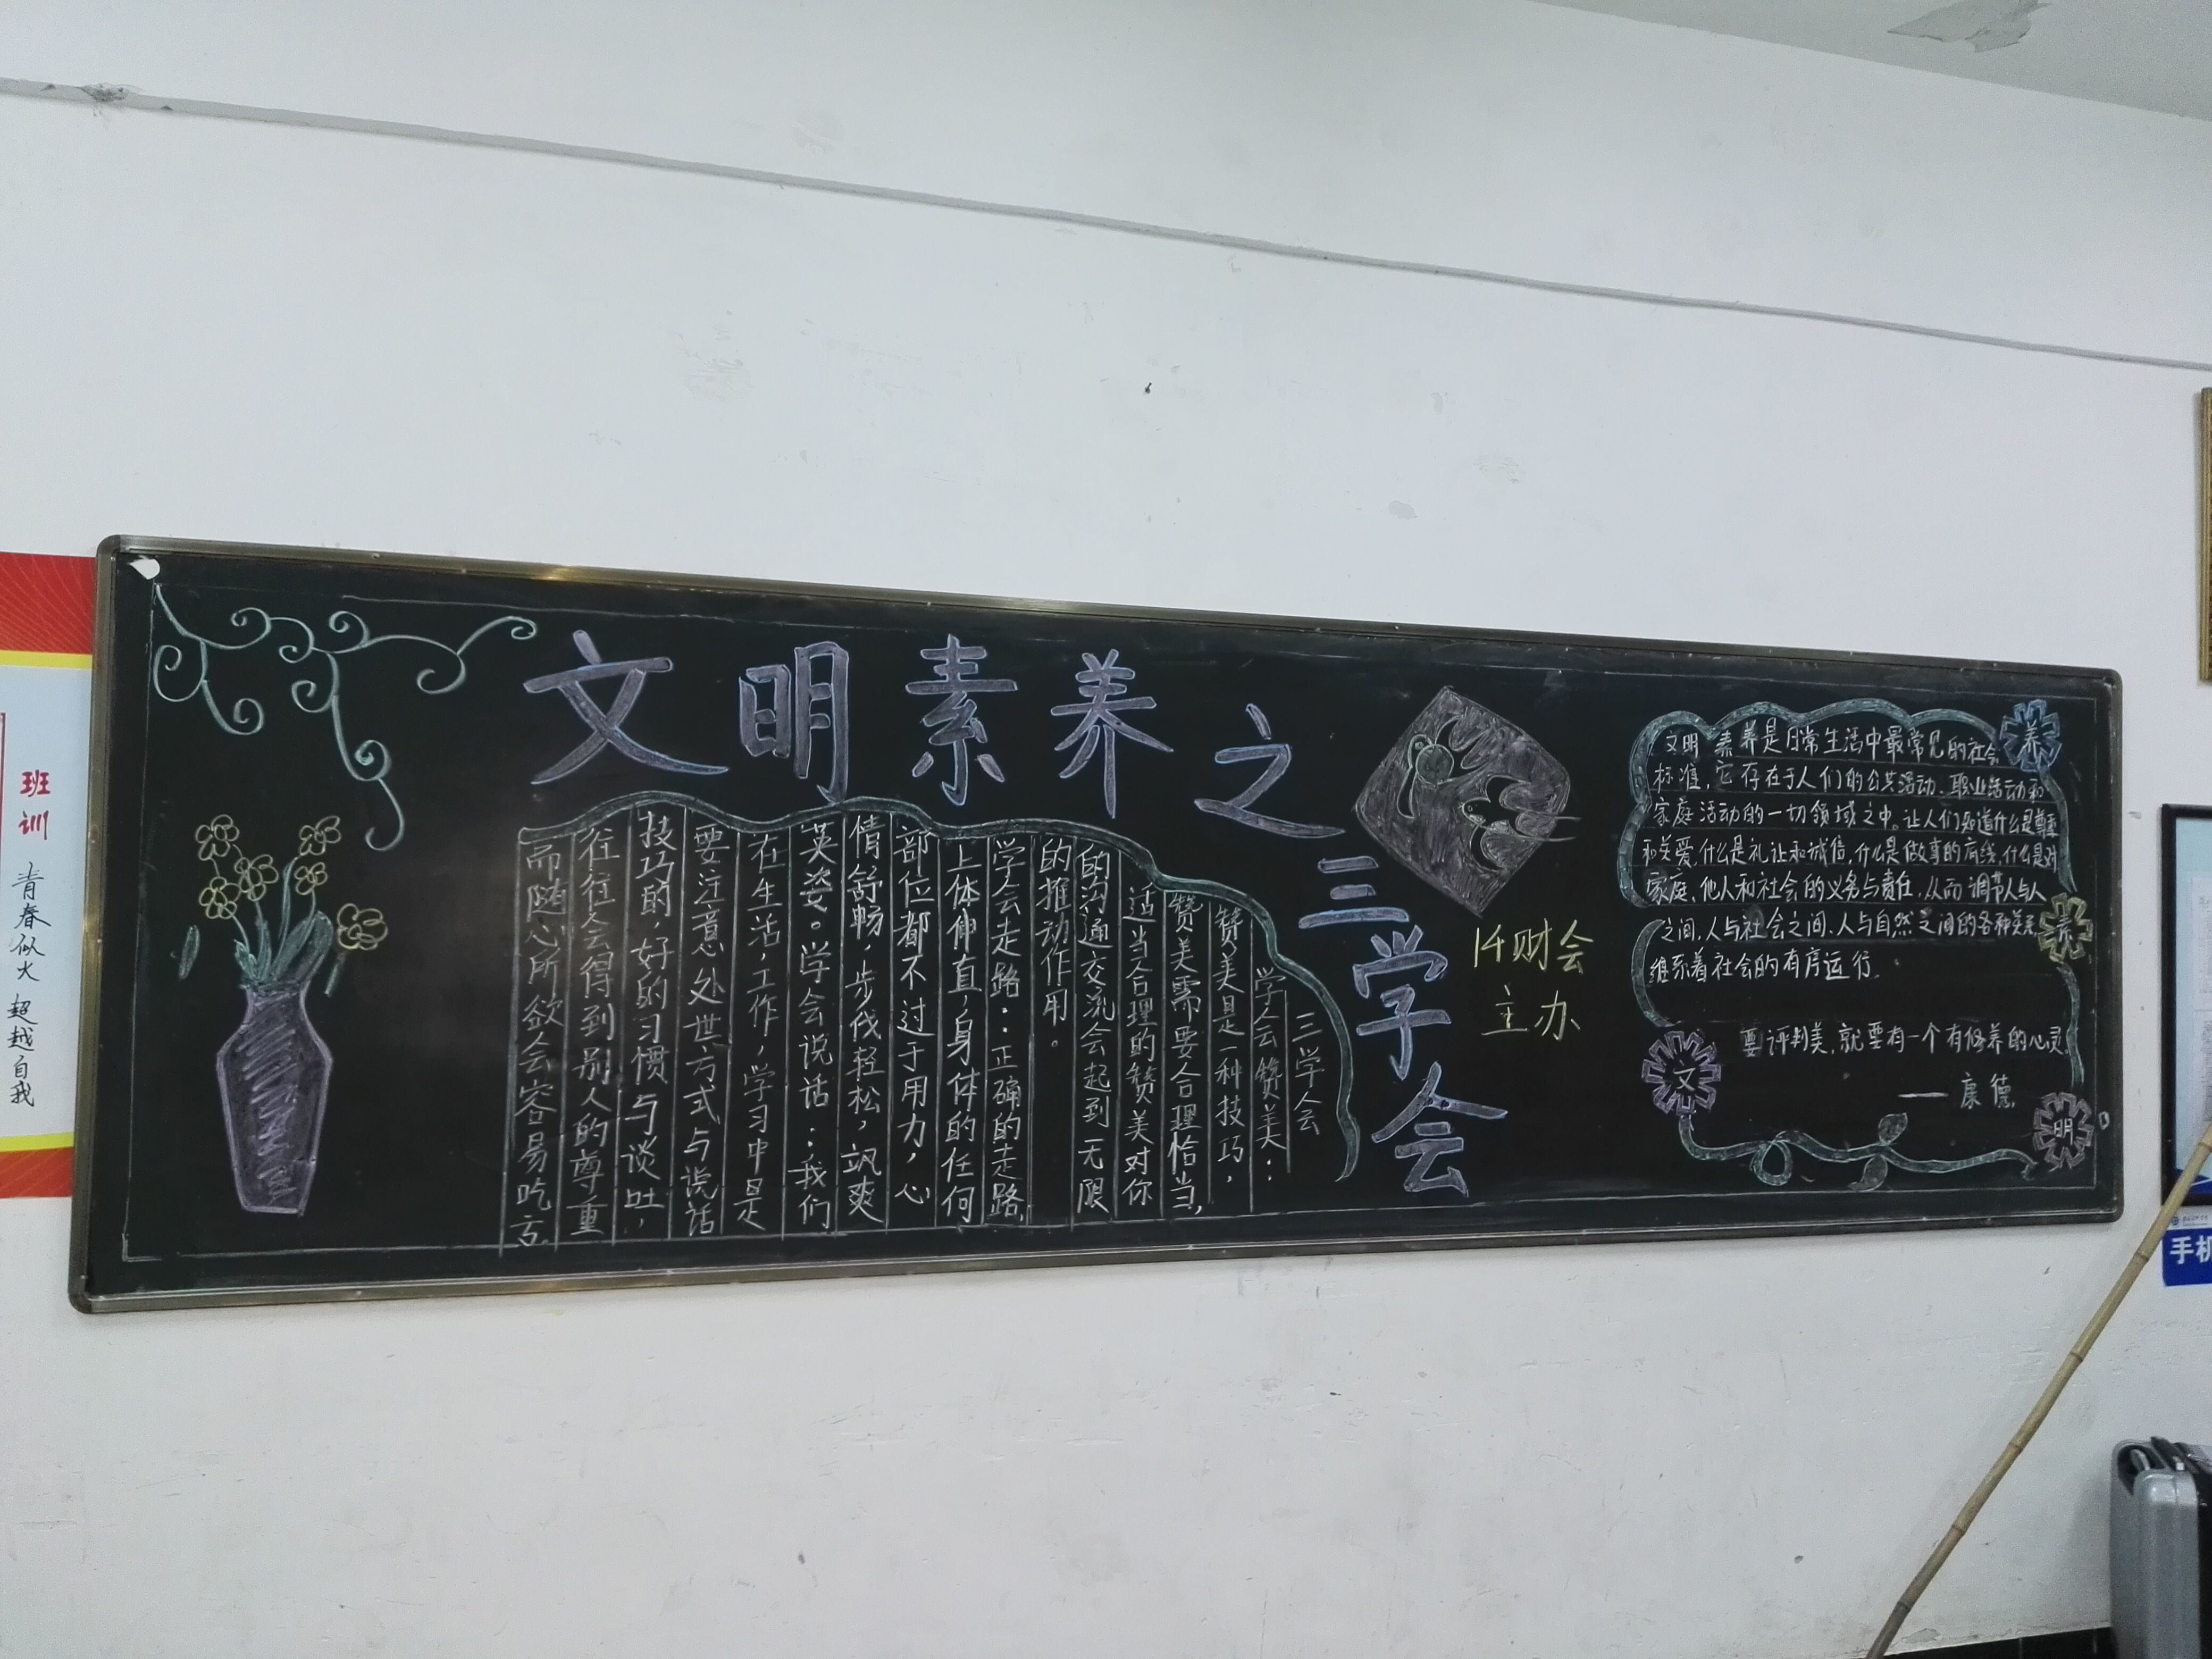 文明素养之三学会
三学会
学会赞美：
赞美是一种技巧，
赞美需要合理恰当，
适当合理的赞美对你
的沟通交流会起到无限
的推动作用。
学会走路：正确的走路，
上体伸直，身体的任何
部位都不过于用力，心
情舒畅，步伐轻松，飒爽
英姿。学会说话：我们
在生活，工作，学习中是
要注意处世方式与说话
技巧的，好的习惯与谈吐，
往往会得到别人的尊重
而随心所欲会容易吃亏。
14财会
主办
文明素养是日常生活中最常见的社会
标准，它存在于人们的公共活动、职业活动和
家庭活动的一切领域之中。让人们知道什么是尊重
和关爱，什么是礼让和诚信，什么是做事的底线，什么是对
家庭，他人和社会的义务与责任，从而调节人与人
之间，人与社会之间，人与自然之间的各种关系
维系着社会的有序运行。
要评判美，就要有一个有修养的心灵
——康德
文
明
素
养
班训
青春似火 超越自我
手机